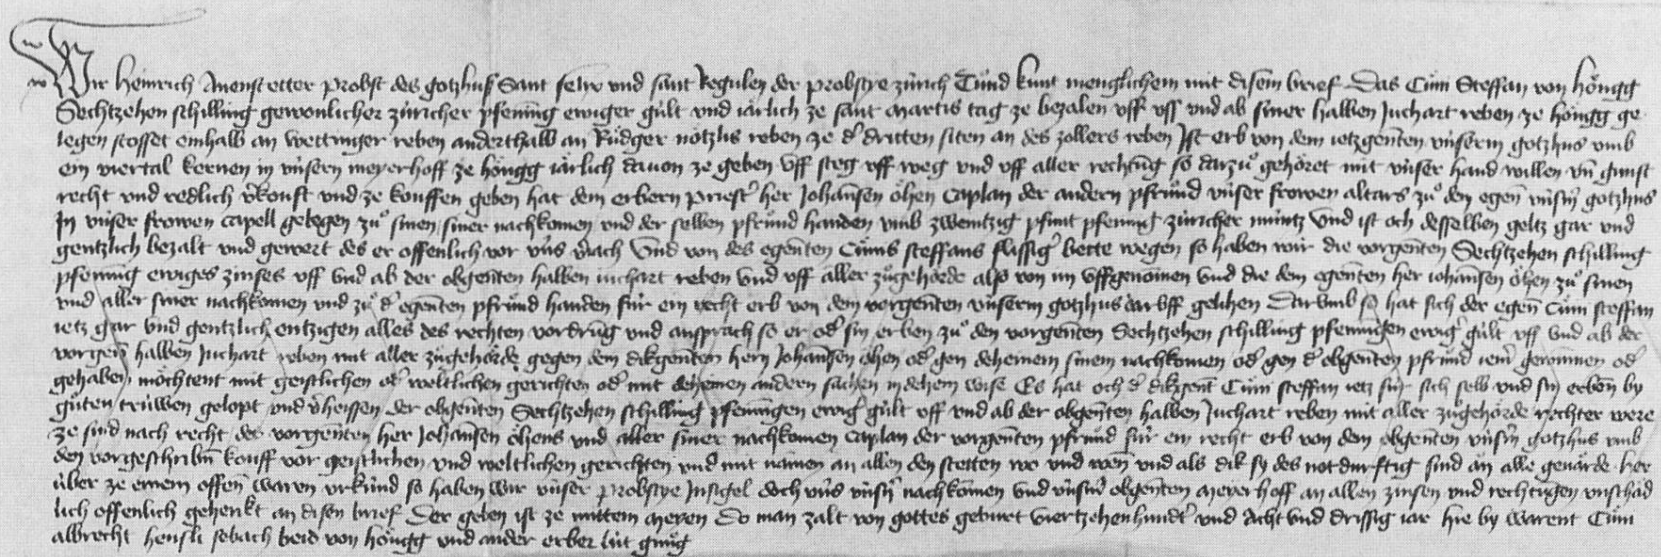 Wir Heinrich Anenstetter Probst des gotzhus Sant Felix vnd sant Regulen der probstye zürich Tünd kunt menglichem mit disem brief Das Cüni Steffan von höngg
Sechtzehen schilling gewonlicher züricher pfening ewiger gült vnd iärlich ze sant martis tag ze bezalen vff vss vnd ab siner halben Juchart reben ze höngg ge
legen stosset einhalb an wettinger reben anderthalb an Rüdger nötzlis reben ze d' dritten siten an des zollers reben Ist erb von dem ietzgenten vnserm gotzhus vmb
ein viertal kernen in vnsern meyerhoff ze höngg iärlich dauon ze geben vff steg vff weg vnd vff aller rechtung so darzuo gehöret mit vnser hand willen vn gunst
recht vnd redlich v'kouft vnd ze kouffen geben hat dem erbern priest' her Johansen öhen Caplan der andern pfruond vnser frowen altars zuo den egen vnsrm gotzhus
In vnser frowen capell gelegen zuo sinen siner nachkomen vnd der selben pfruond handen vmb zwentzig pfunt pfening züricher müntz Vnd ist och desselben geltz gar vnd
gentzlich bezalt vnd gewert des er offenlich vor vns v'iach Vnd von des egenten Cünis steffans flissig' bette wegen so haben wir die vorgenten Sechtzehen schilling
pfening ewiges zinses vff vnd ab der obgenten halben iuchart reben vnd vff aller zuogehörde also von im vffgenomen vnd die dem egenten her iohansen öhen zuo sinen
vnd aller siner nachkomen vnd zuo d' egenten pfruond handen für ein recht erb von dem vorgenten vnserm gotzhus dar vff gelihen Darvmb so hat sich der egen Cüni steffan
ietz gar vnd gentzlich entzigen alles des rechten vordrung vnd ansprach so er od' sin erben zuo den vorgenten Sechtzehen schilling pfenningen ewig' gült vff vnd ab der
vorgen halben Juchart reben mit aller zuogehörde gegen dem dikgenten hern Johansen öhen od' gen deheinem sinem nachkomen od' gen d' obgenten pfruond iem' gewinnen od'
gehaben möchtent mit geistlichen od' weltlichen gerichten od' mit deheinen andern sachen in dehein wise Es hat och d' dikgent Cüni steffan ietz für sich selb vnd sin erben by
guoten trüwen gelopt vnd v'heissen der obgenten Sechtzehen schilling pfenningen ewig' gült vff vnd ab der obgenten halben Juchart reben mit aller zuogehörde rechter were
ze sind nach recht des vorgenten her Johansen öhens vnd aller siner nachkomen Caplan der vorgenten pfruond für ein recht erb von dem obgenten vnsrm gotzhus vmb
den vorgeschribn kouff vor geistlichen vnd weltlichen gerichten vnd mit namen an allen den stetten wo vnd wen vnd als dik sy des notdurftig sind än alle geuärde her
über ze einem offen waren vrkünd so haben wir vnser probstye Insigel doch vns vnsrn nachkomen vnd vnsrm obgenten meyerhoff an allen zinsen vnd rechtungen vnschäd
lich offenlich gehenkt an disen brief Der geben ist ze mittem meyen Do man zalt von gottes geburt viertzehenhundt' vnd Acht vnd drissig iar hie by warent Cüni
albrecht hensli sebach beid von höngg vnd ander erber lüt gnuog